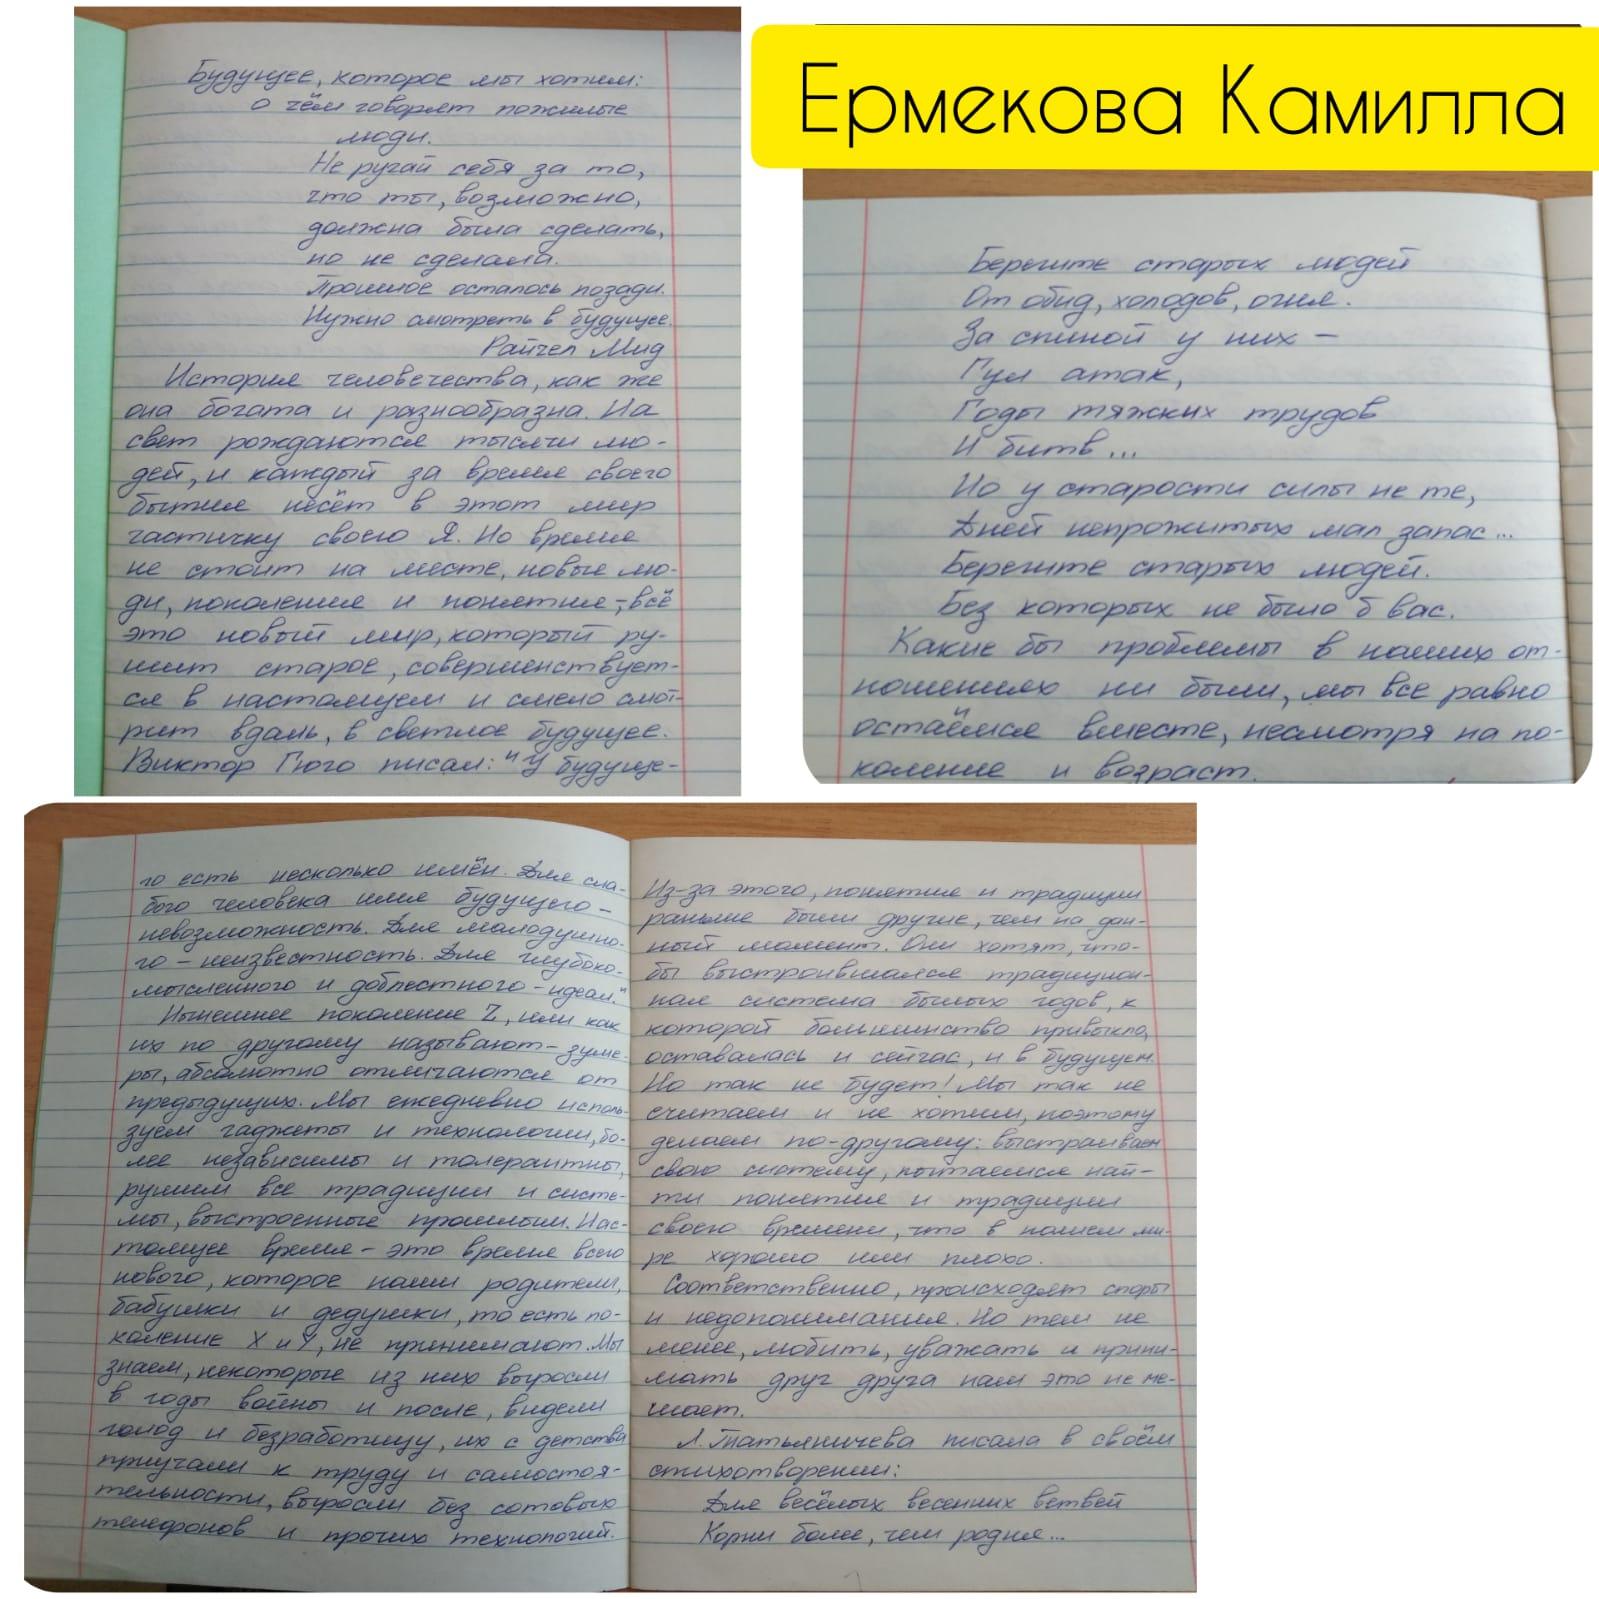 Ермекова Камилла
Будущее, которое мы хотим:
о чём говорят пожилые
люди.
Не ругай себя за то,
что ты, возможно,
должна была сделать,
но не сделала.
Прошлое осталось позади.
Нужно смотреть в будущее.
Райчел Мид
История человечества, как же
она богата и разнообразна. На
свет рождаются тысячи лю-
дей, и каждый за время своего
бытия несёт в этот мир
частичку своего Я. Но время
не стоит на месте, новые лю-
ди, поколения и понятия-, всё
это новый мир, который ру-
шит старое, совершенствует-
ся в настоящем и смело смот-
рит вдаль, в светлое будущее.
Виктор Гюго писал: "У будуще-
го есть несколько имён. Для сла-
бого человека имя будущего –
невозможность. Для малодушно-
го – неизвестность. Для глубоко-
мысленного и доблестного – идеал."
Нынешнее поколение Z, или как
их по другому называют – зуме-
ры, абсолютно отличаются от
предыдущих. Мы ежедневно исполь-
зуем гаджеты и технологии, бо-
лее независимы и толерантны,
рушим все традиции и систе-
мы, выстроенные прошлым. Нас-
тоящее время – это время всего
нового, которое наши родители,
бабушки и дедушки, то есть по-
коление X и Y, не принимают. Мы
знаем, некоторые из них выросли
в годы войны и после, видели
голод и безработицу, их с детства
приучали к труду и самостоя-
тельности, выросли без сотовых
телефонов и прочих технологий.
Из-за этого, понятия и традиции
раньше были другие, чем на дан-
ный момент. Они хотят, что-
бы выстроившаяся традицион-
ная система былых годов, к
которой большинство привыкло,
оставалась и сейчас, и в будущем.
Но так не будет! Мы так не
считаем и не хотим, поэтому
делаем по-другому: выстраиваем
свою систему, пытаемся най-
ти понятия и традиции
своего времени, что в нашем ми-
ре хорошо или плохо.
Соответственно, происходят споры
и недопонимания. Но тем не
менее, любить, уважать и прини-
мать друг друга нам это не ме-
шает.
Л. Татьяничева писала в своём
стихотворении:
Для весёлых весенних ветвей
Корни более, чем родня...
Берегите старых людей
От обид, холодов, огня.
За спиной у них –
Гул атак,
Годы тяжких трудов
И битв...
Но у старости силы не те,
Дней непрожитых мал запас...
Берегите старых людей.
Без которых не было б вас.
Какие бы проблемы в наших от-
ношениях ни были, мы все равно
остаёмся вместе, несмотря на по-
коление и возраст.